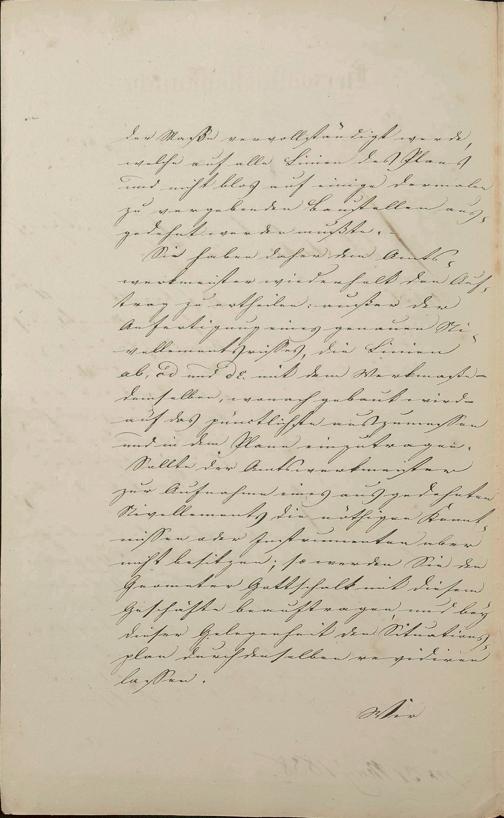 der Maße vervollständigt werde,
welche auf alle Linien des Plans
und nicht blos auf einige dermalen
zu vergebenden Baustellen aus-
gedehnt werden müßte.
Sie haben daher dem Amts-
werkmeister wiederholt den Auf-
trag zu ertheilen: außer der
Anfertigung eines genauen Ni-
vellementsrisses, die Linien
ab, cd und de. mit dem Werkmaße
demselben, wonach gebaut wird
auf das pünctlichste auszumessen
und in dem Plane einzutragen.
Sollte der Amtswerkmeister
zur Aufnahme eines ausgedehnten
Nivellements die nöthigen Kennt-
nissen oder Instrumenten aber
nicht besitzen; so werden Sie den
Geometer Gottschalk mit diesem
Geschäfte beauftragen und bey
dieser Gelegenheit den Situations-
plan durch denselben revidiren
lassen.
Wir